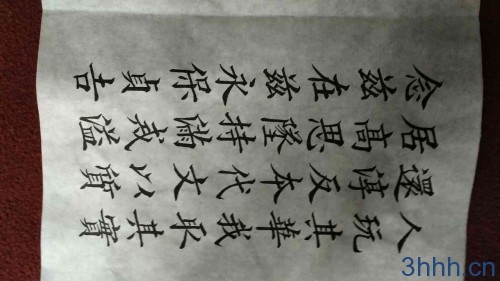 人玩其華我取其實
還淳反本代文以質
居高思墜持滿戒溢
念兹在兹永保貞吉
3hhh.cn